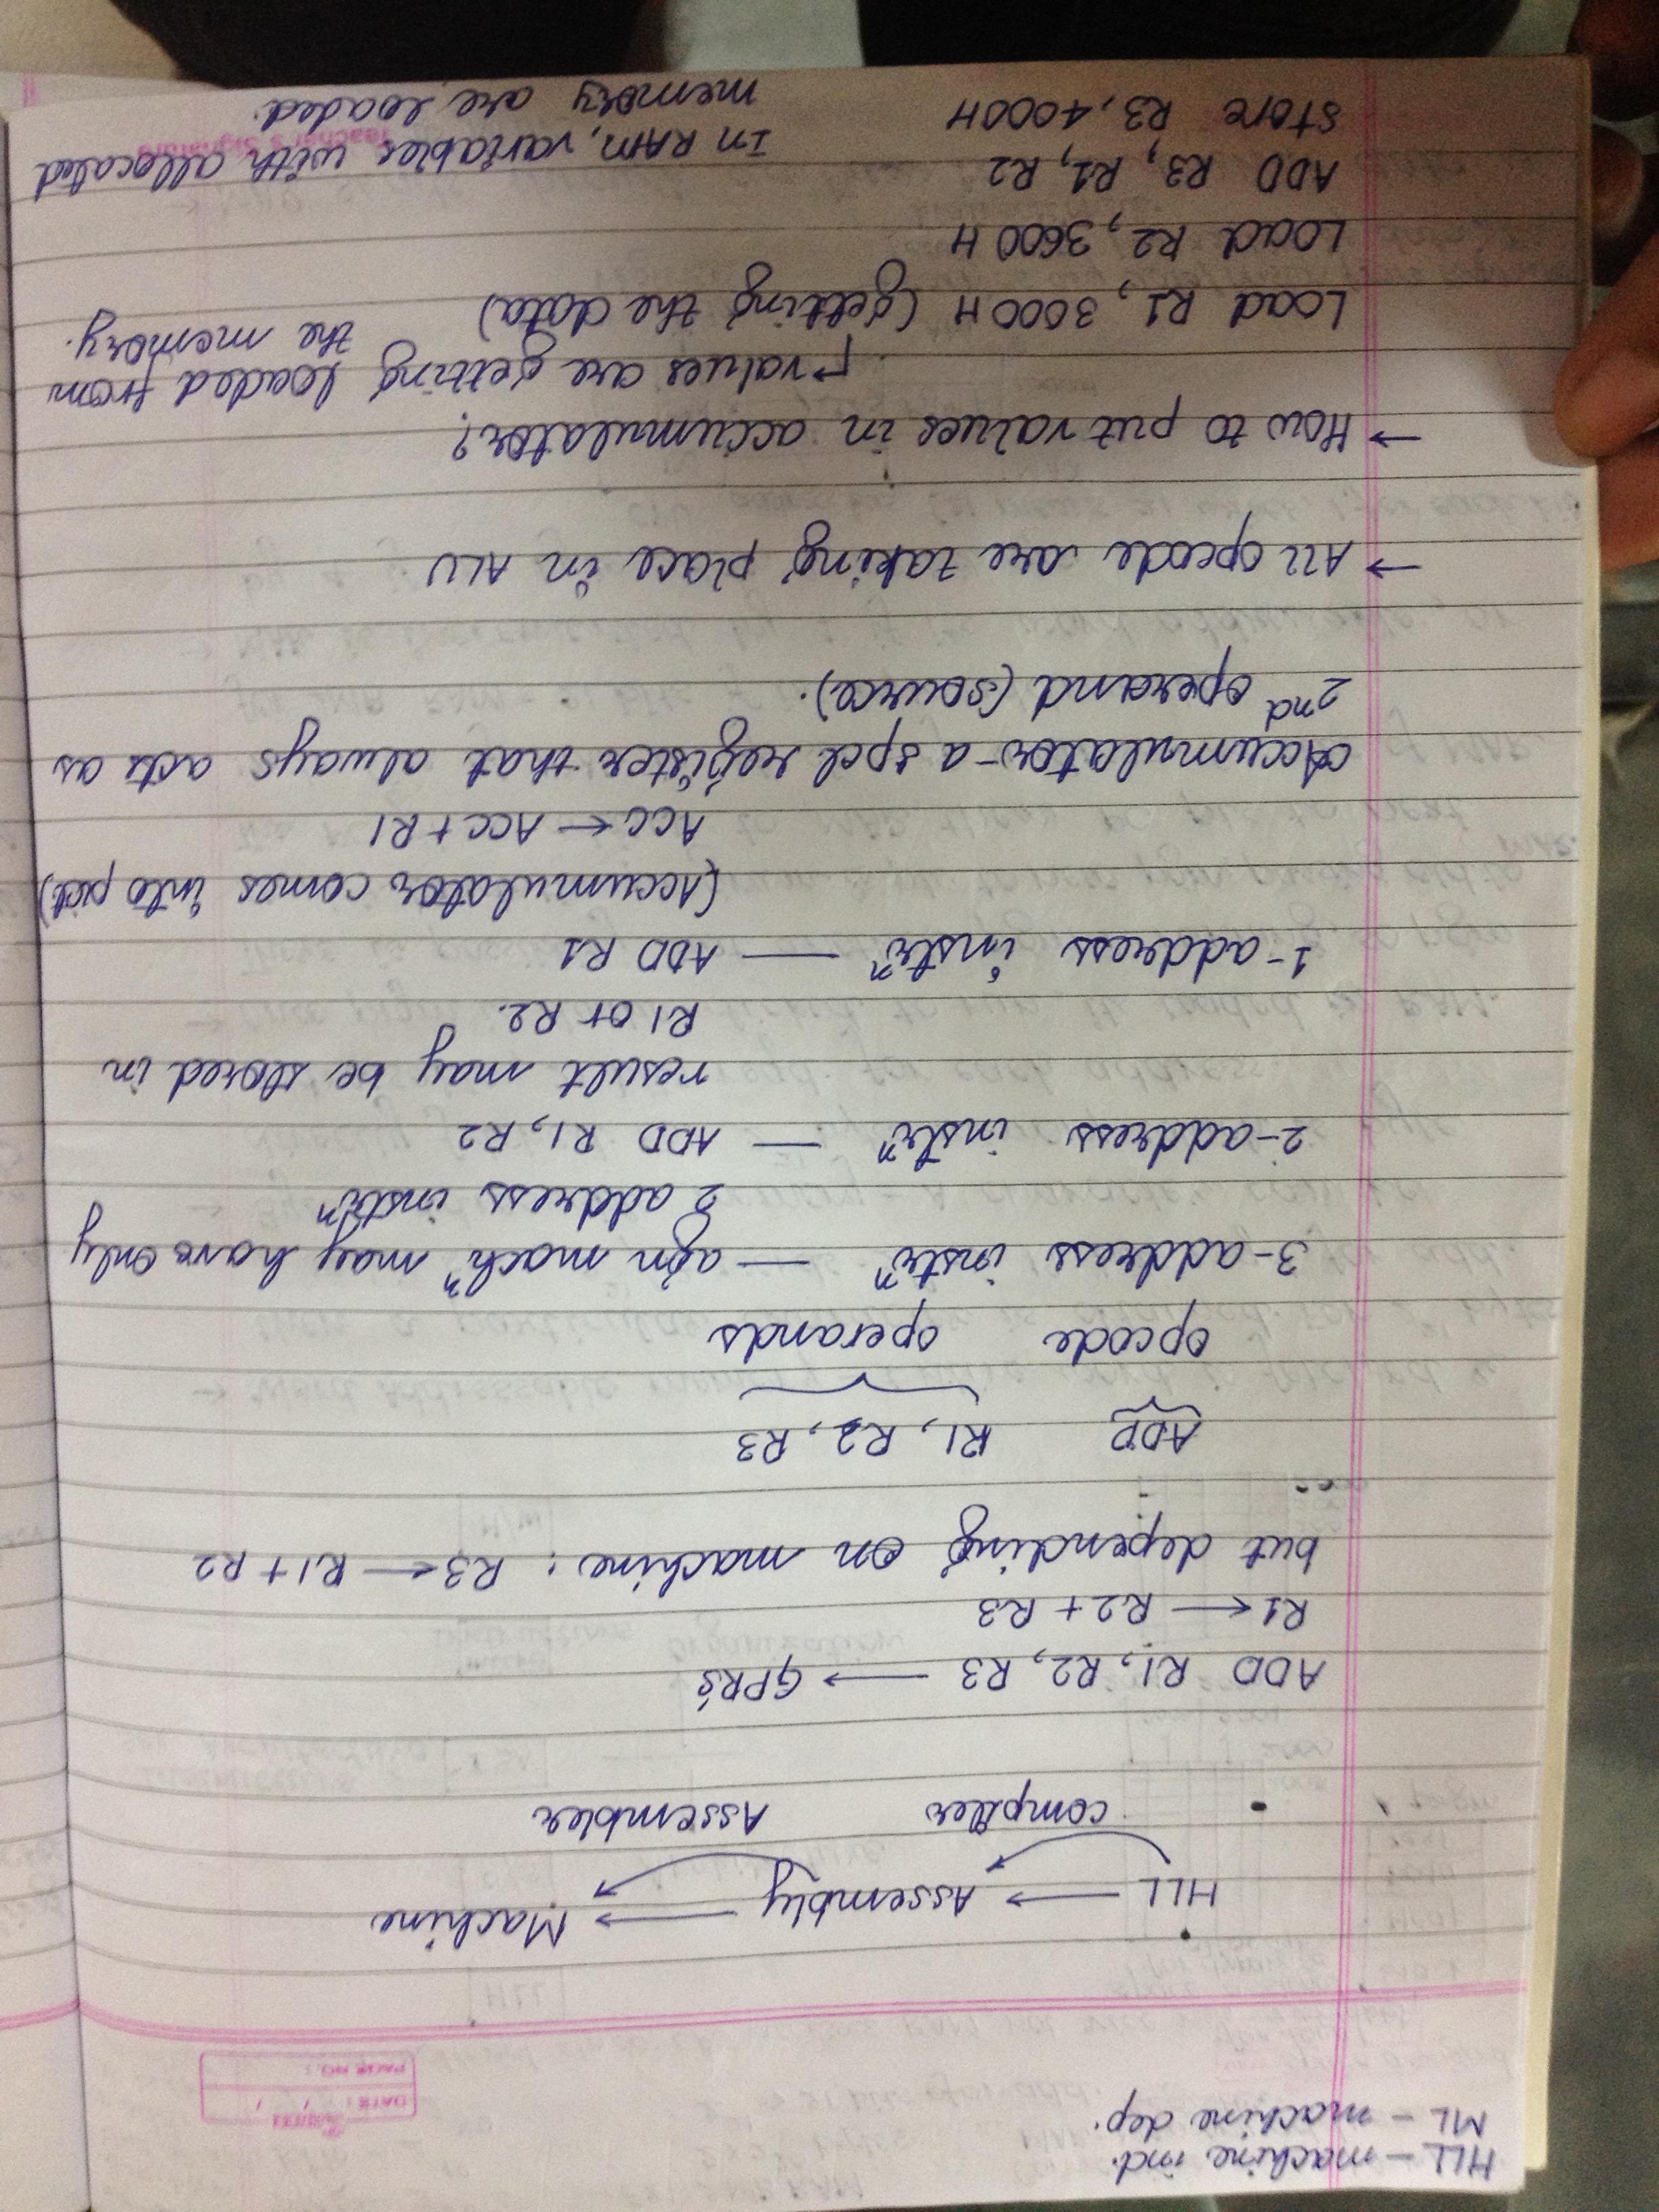 HLL - machine ind.
ML - machine dep.
DATE: / /
PAGE NO.:
HLL → Assembly → Machine
compiler Assembler
ADD R1, R2, R3 → GPR's
R1 ← R2 + R3
but depending on machine: R3 ← R1 + R2
ADD R1, R2, R3
opcode operands
3-address instrⁿ — agn machⁿ may have only
2 address instrⁿ
2-address instrⁿ — ADD R1, R2
result may be stored in
R1 or R2.
1-address instrⁿ — ADD R1
(Accumulator comes into pict)
ACC ← ACC + R1
Accumulator - a spcl register that always acts as
2nd operand (source).
→ All opcode are taking place in ALU
→ How to put values in accumulator?
values are getting loaded from
the memory.
Load R1, 3000H (getting the data)
Load R2, 3600H
ADD R3, R1, R2
Store R3, 4000H
In RAM, variables with allocated
memory are loaded.
Teacher's Signature